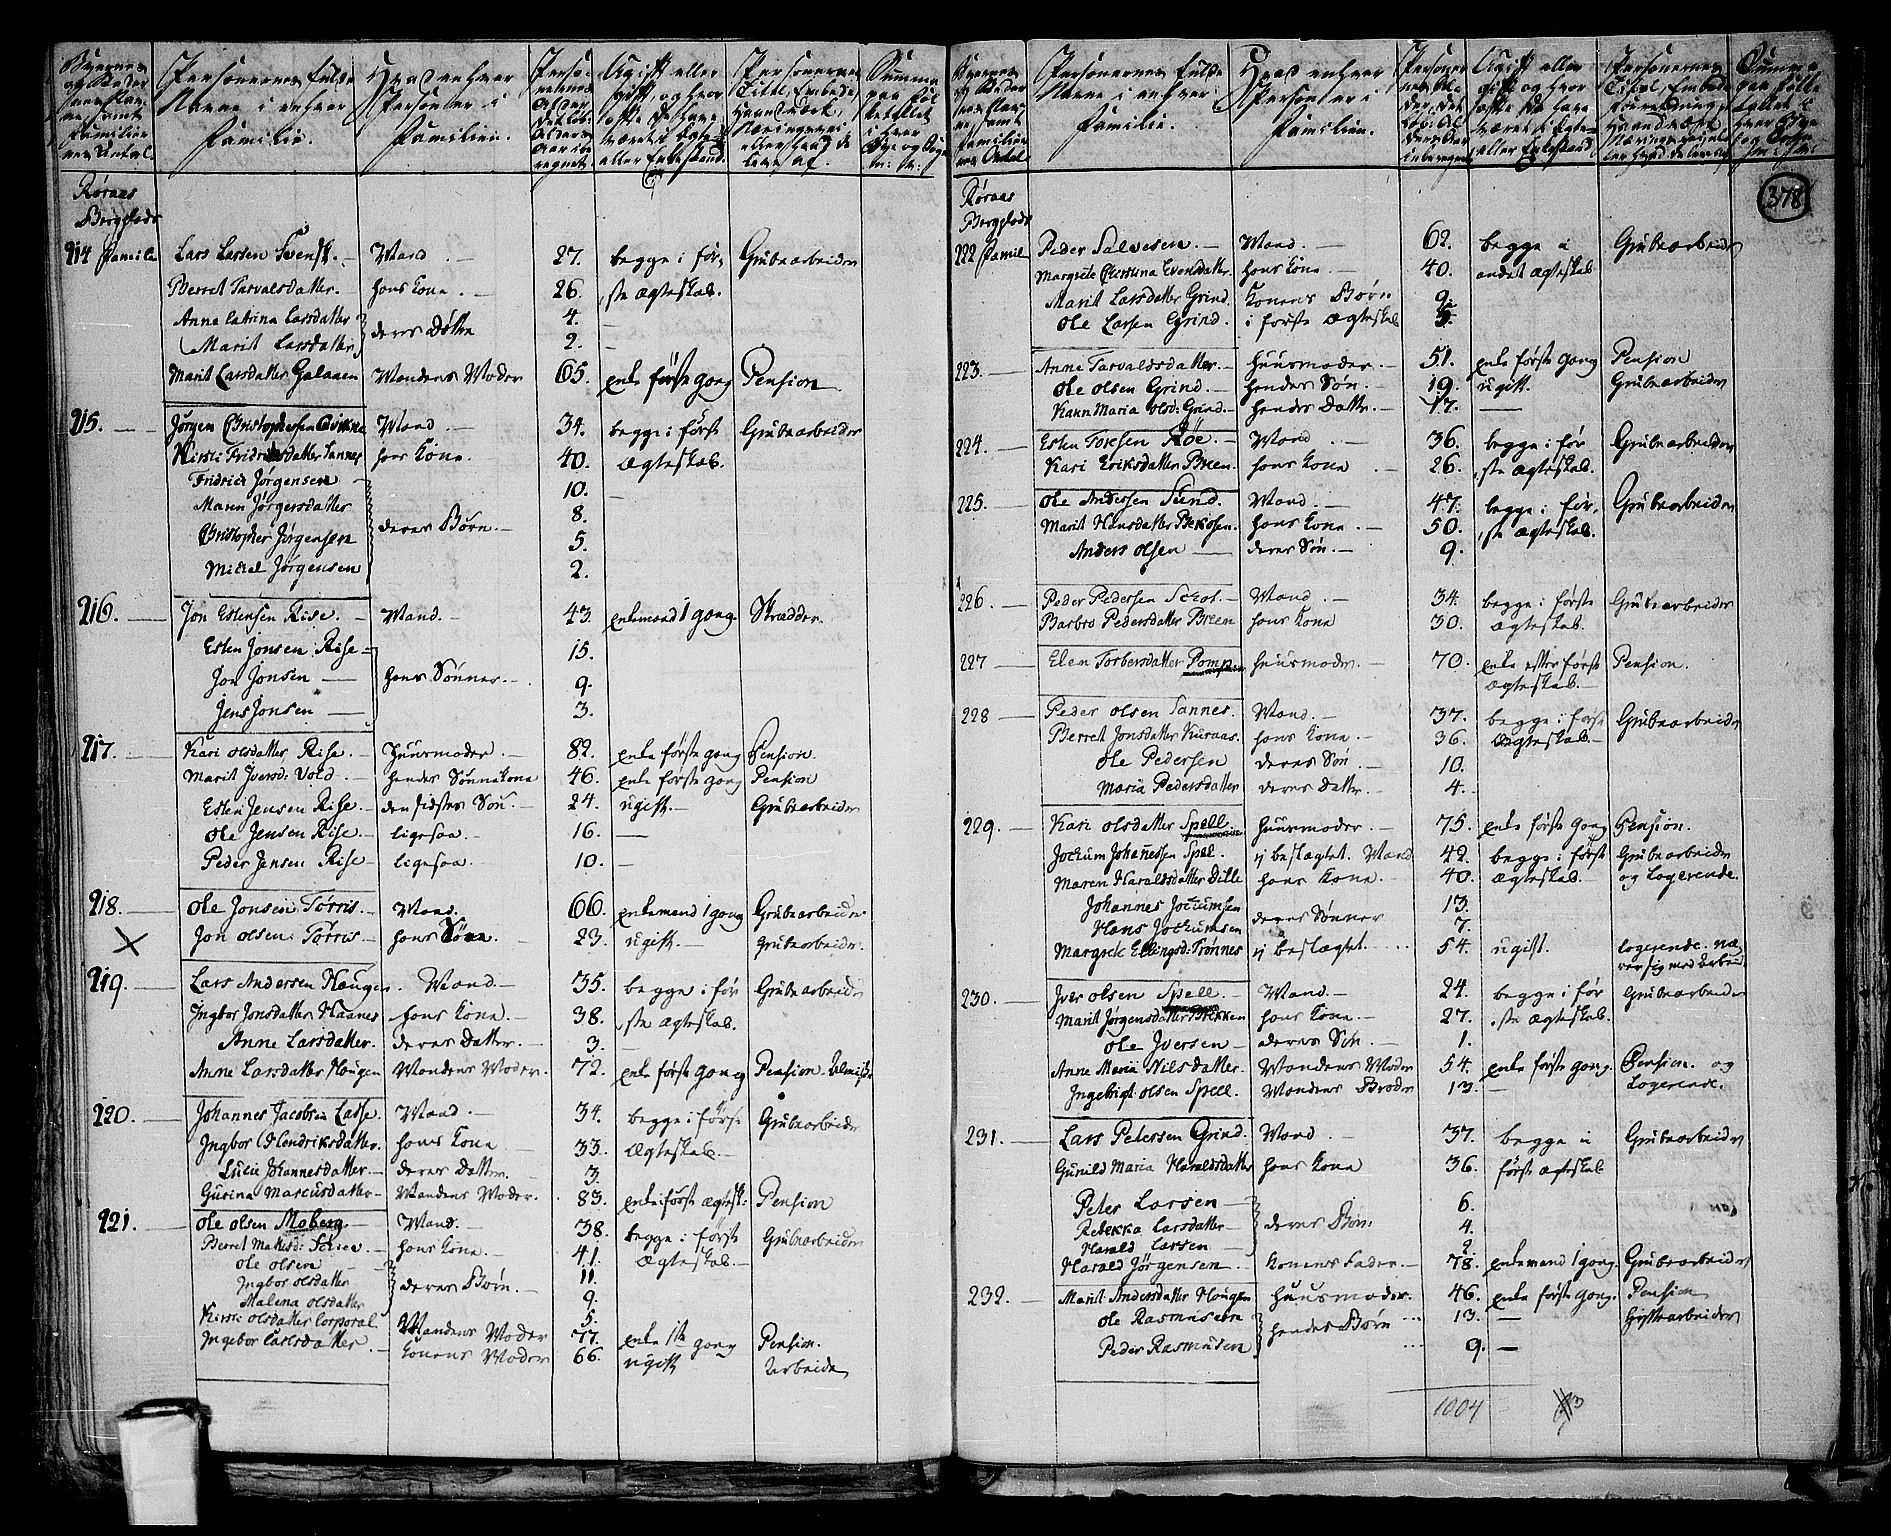 Personernes fulde
Navne i enhver
Familie.
Hvad enhver
Person er i
Familien.
Røraas
Bergstads
214 Famil. Lars Larsen Svensk. Mand. 27. begge i før- Grubearbeider
Berret Tarvalsdatter. hans Kone. 26. ste Ægteskab.
Anne Catrina Larsdatter 4.
deres Døttre
Marit Larsdatter 2.
Marit Larsdatter Galaaen Mandens Moder 65. Enke første gang Pension
215. Jørgen Christophersen Qvikne Mand. 34. begge i første Grubearbeider
Kirsti Fridrichsdatter Sannes hans Kone. 40. Ægteskab.
Fridrich Jørgensen 10.
Maren Jørgensdatter 8.
deres Børn.
Christopher Jørgensen 5.
Mickel Jørgensen 2.
216. Jon Estensen Rise. Mand. 43. Enkemand 1 gang. Skrædder.
Esten Jonsen Rise 15.
Jon Jonsen hans Sønner. 9.
Jens Jonsen 3.
217. Kari Olsdatter Rise. Huusmoder. 82. Enke første gang Pension.
Marit Iversd: Vold. hendes Sønnekone 46. Enke første gang Pension
Esten Jensen Rise. den sidstes Søn. 24. ugift. Grubearbeider
Ole Jensen Rise. ligesaa. 16.
Peder Jensen Rise ligesaa. 10.
218. Ole Jonsen Tørris. Mand. 66. Enkemand 1 gang Grubearbeider
Jon Olsen Tørris. hans Søn 23. ugift. Grubearbeider.
219. Lars Andersen Hougen. Mand. 35. begge i før Grubearbeider
Ingbor Jonsdatter Haanes hans Kone. 38. ste Ægteskab.
Anne Larsdatter. deres Datter. 3.
Anne Larsdatter Hougen Mandens Moder. 72. Enke første gang Pension.
220. Johannes Jacobsen Lasse. Mand. 34. begge i første Grubearbeider
Ingbor Hendriksdatter. hans Kone 33. Ægteskab.
Lucie Johannesdatter. deres Datter. 3.
Gurina Marcusdatter Mandens Moder. 83. Enke i første Ægtesk: Pension
221. Ole Olsen Moberg Mand. 38. begge i første Grubearbeider
Berret hans Kone. 41. Ægteskab.
Ole Olsen 11.
Ingbor Olsdatter deres Børn. 9.
Malena Olsdatter 5.
Kirsti Olsdatter Corporal Mandens Moder 77. Enke 1ste gang Pension.
Ingebor Carlsdatter. Konens Moder 66. ugift Arbeide
Personernes fulde
Navne i enhver
Familie.
Hvad enhver
Person er i
Familien.
378
Røraas
Bergstads
222 Famil Peder Salvesen. Mand. 62. begge i Grubearbeider
Margrete Christina Evensdatter. hans Kone. 40. andet Ægteskab
Marit Larsdatter Grind. Konens Børn 9.
Ole Larsen Grind. i første Ægteskab 5.
223. Anne Tarvaldsdatter. Huusmoder. 51. Enke første gang Pension
Ole Olsen Grind. hendes Søn. 19. ugift. Grubearbeider
Karen Maria Olsd: Grind. hendes Datter. 17.
224. Esten Torsen Røe. Mand. 36. begge i før Grubearbeider
Kari Eriksdatter Breen. hans Kone 26. ste Ægteskab.
225. Ole Andersen Sund. Mand. 47. begge i før- Grubearbeider
Marit Hansdatter hans Kone. 50. ste Ægteskab.
Anders Olsen deres Søn. 9.
226. Peder Pedersen Mand. 34. begge i første Grubearbeider
Barbro Pedersdatter Breen hans Kone 30. Ægteskab.
227 Elen Torbersdatter Huusmoder. 70. Enke efter første Pension.
Ægteskab.
228 Peder Olsen Sannes. Mand. 37. begge i første Grubearbeider
Berret Jonsdatter Kuraas. hans Kone. 36. Ægteskab
Ole Pedersen deres Søn. 10.
Maria Pedersdatter deres Datter. 4.
229. Kari Olsdatter Spell. Huusmoder. 75. Enke første gang Pension.
Jochum Johannessen Spel. ej beslægtet. Mand 42. begge i første Grubearbeider
Maren Haraldsdatter Dille hans Kone. 40. Ægteskab. og Logerende.
Johannes Jochumsen 13.
deres Sønner
Hans Jochumsen 7.
Margrete Ellingsd: Trønnes ej beslægtet 54. ugift. logerende. næ
rer sig med Arbeid
230. Iver Olsen Spell. Mand. 24. begge i før Grubearbeider
Marit Jørgensdatter Brekken hans Kone. 27. ste Ægteskab.
Ole Iversen deres Søn. 1.
Anne Maria Nilsdatter. Mandens Moder 54. Enke første gang. Pension. og
Ingebrigt Olsen Spell. Mandens Broder 13. Logerende.
231. Lars Petersen Grind. Mand. 37. begge i Grubearbeider
Gunild Maria Haraldsdatter hans Kone 36. første Ægteskab
Peter Larsen 6.
Rebekka Larsdatter deres Børn 4.
Harald Larsen 2.
Harald Jørgensen Konens Fader. 78. Enkemand 1 gang. Grubearbeider
232. Marit Andersdatter Hougen Huusmoder. 46. Enke første gang. Pension
Ole Rasmusen 13. Hyttearbeider
hendes Børn
Peder Rasmusen 9.
1004